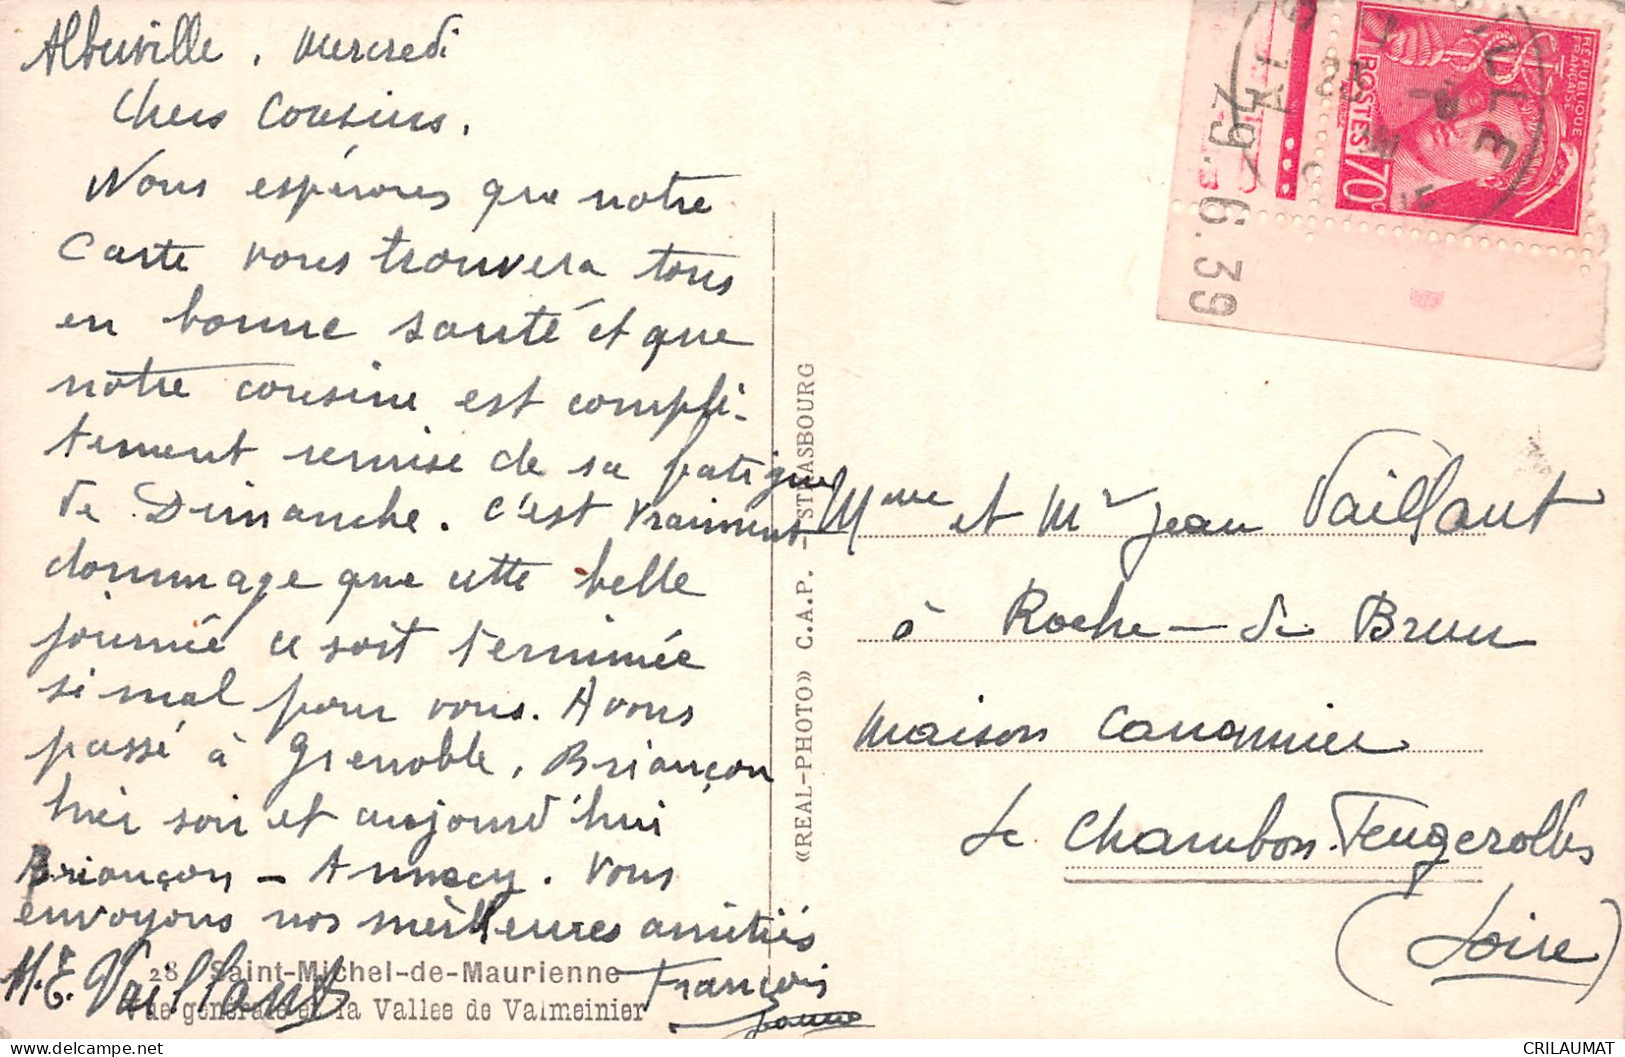 Albertville, Mercredi
Chers Cousins.
Nous espérons que notre
carte vous trouvera tous
en bonne santé et que
notre cousine est complè-
tement remise de sa fatigue
de Dimanche. C'est vraiment
dommage que cette belle
journée ce soit terminée
si mal pour vous. Avons
passé à Grenoble, Briançon
hier soir et aujourd'hui
Briançon - Annecy. Vous
envoyons nos meilleures amitiés
M. E. Vaillant
François
28 Saint-Michel-de-Maurienne
Vue générale et la Vallée de Valmeinier
«REAL-PHOTO» C.A.P. - STRASBOURG
RÉPUBLIQUE
FRANÇAISE
POSTES 70c
29.6.39
Mme et Mr Jean Vaillant
à Roche-de Brun
maison Canonnier
Le Chambon-Feugerolles
(Loire)
CRILAUMAT